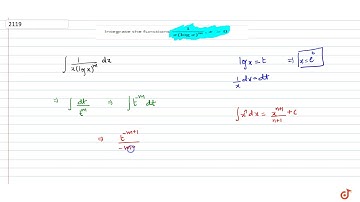 2119
Integrate the function
∫ 1/(x(log x)^m) dx
log x = t ⇒ x = e^t
1/x dx = dt
⇒ ∫ dt/t^m ⇒ ∫ t^-m dt
∫ x^n dx = x^(n+1)/(n+1) + c
⇒ t^(-m+1)